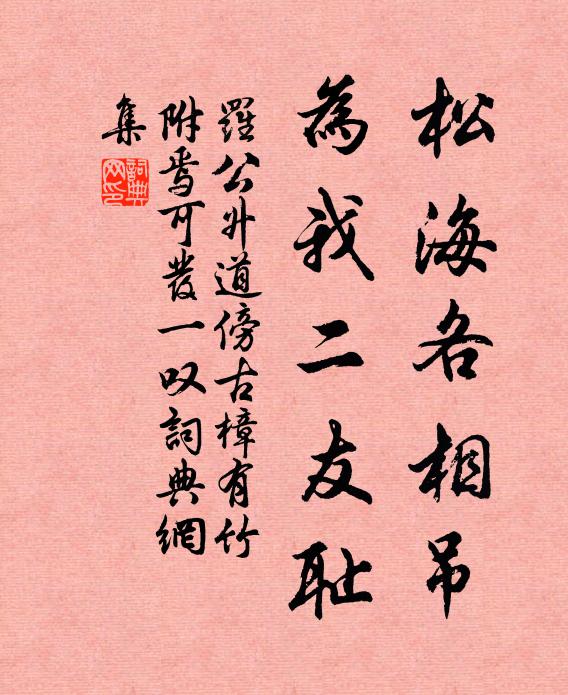 松海各相吊
為我二友耻
羅公升道傍古樟有竹
附焉可發一叹詞典網
集
詞典
网印